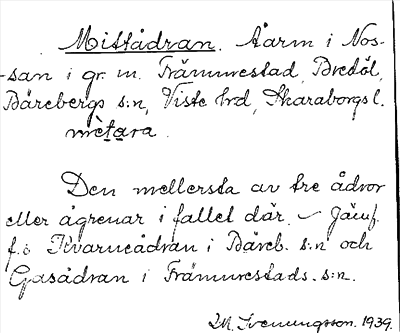 Mittådran. Åarm i Nos-
san i gr. m. Främmestad, Bredöl,
Bärebergs s:n, Viste hrd, Skaraborgs l.
mètara.
Den mellersta av tre ådror
eller ågrenar i fallet där. – Jämf.
f. ö Kvarneådran i Bäreb. s:n och
Gasådran i Främmestads. s:n.
M. Svenungsson. 1939.